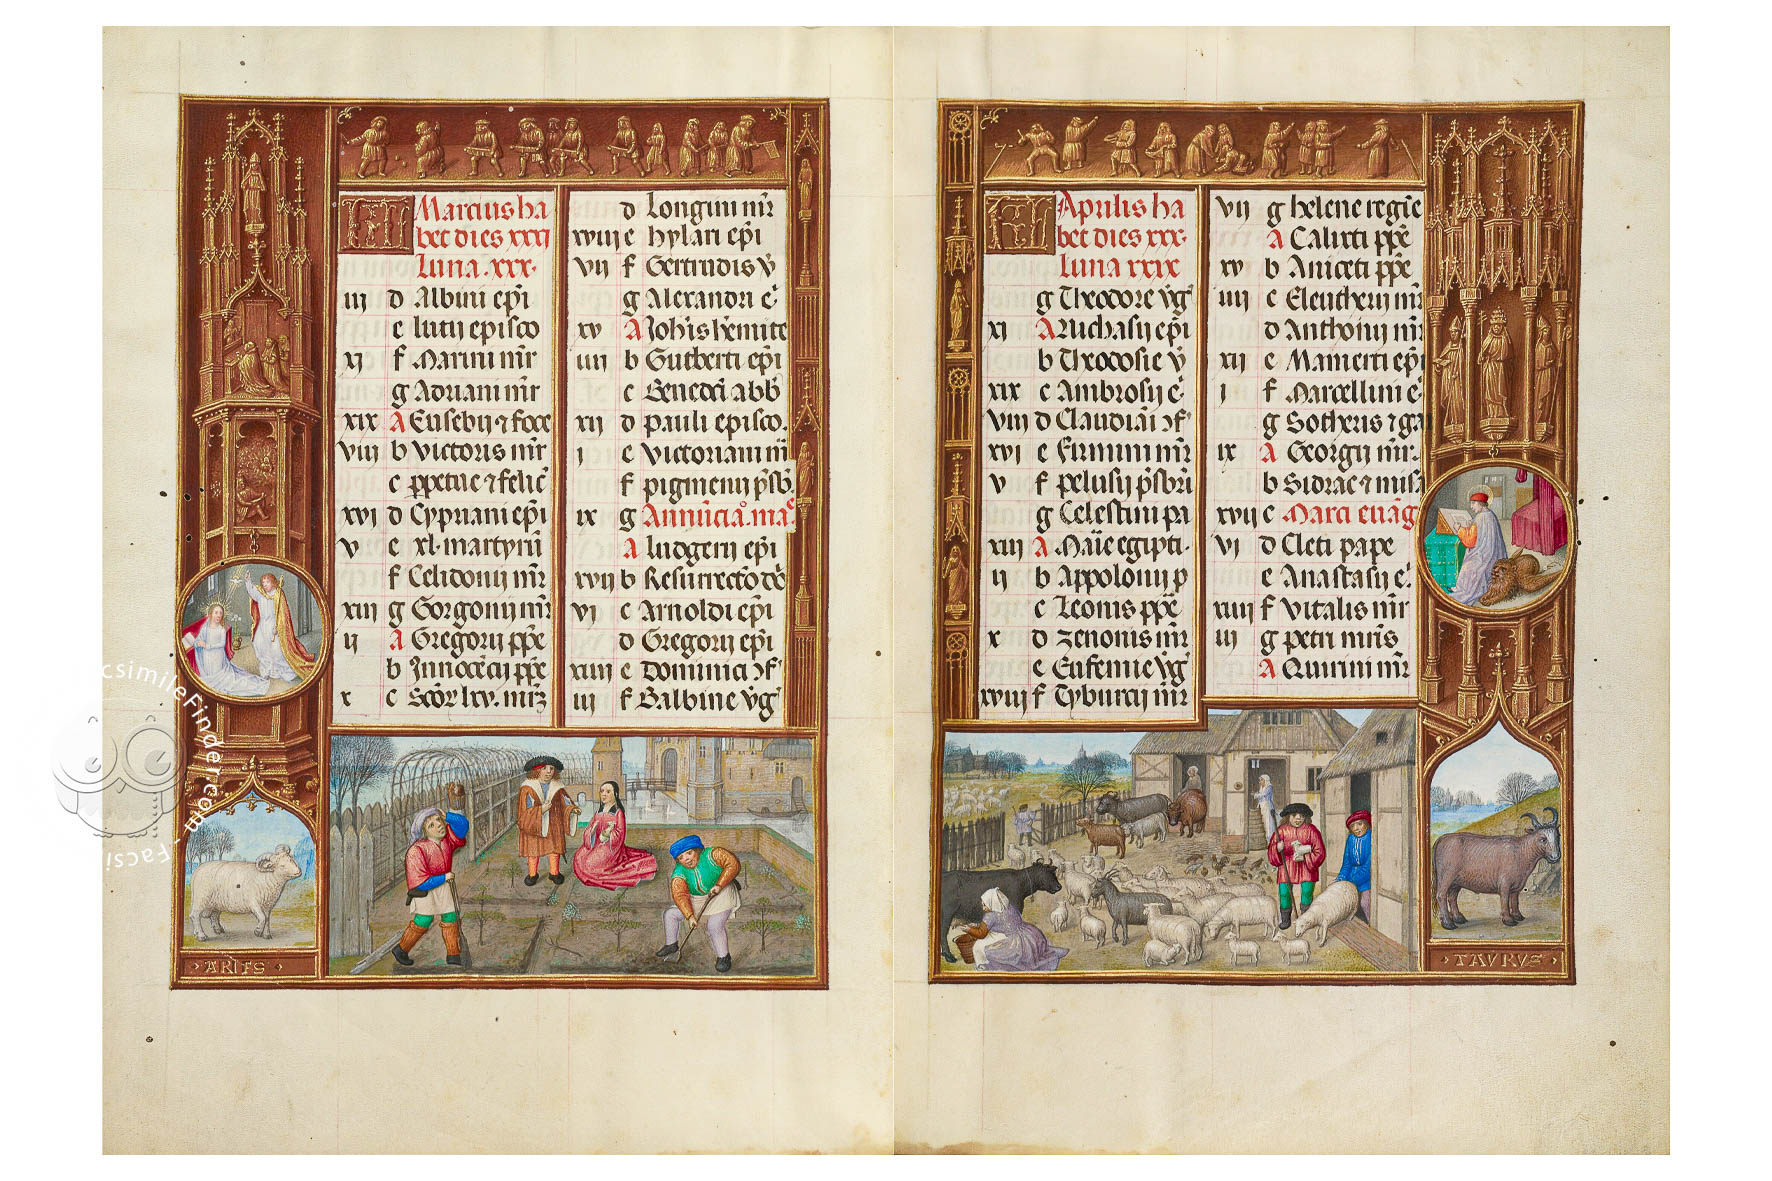 KL Marcius ha
bet dies xxxi
Luna .xxx.
iii d Albini ep̄i
e lucij episco
xi f Marini mr̄
g Adriani mr̄
xix A Eusebij ⁊ foce
viii b victoris mr̄
c ꝑpetue ⁊ felic̄
xvi d Cypriani ep̄i
v e xl. martyrū
f Celidonij mr̄
xiii g Gorgonij mr̄
ii A Gregorij pp̄e
b Innocēcij pp̄e
x c
d Longini mr̄
xviii e hylari ep̄i
vii f Gertrudis v̄
g Alexandri e.
xv A Joh'is h'emite
iiii b Gutberti ep̄i
c Benedc̄i abb̄
xii d pauli episco.
i e victoriani m̄
f pigmenij p̄sb.
ix g Annūcia.° ma.e
A ludgerij ep̄i
xvii b Resurrectō dō
vi c Arnoldi ep̄i
d Gregorij ep̄i
xiiii e Dominici ɔf
iii f Balbine v̄g
ARIES
KL Aprilis ha
bet dies xxx.
luna xxix
g Theodore v̄g
xi A Nichasij ep̄i
b Theodosie v̄
xix c Ambrosij e.
viii d Claudiāi ɔf
xvi e Firmini mr̄
v f pelusij p̄sbr̄i
g Celestini pa
xiii A Maīe egipti.
ii b Appolonij p
c Leonis pp̄e
x d zenonis mr̄
e Eufemie v̄g
xviii f Tyburcij mr̄
vii g helene regīe
A Calixti pp̄e
xv b Aniceti pp̄e
iiii c Eleutherij mr̄
d Anthonij mr̄
xii e Mamerti ep̄i
i f Marcellini e.
g Sotheris ⁊ ga
ix A Georgij mr̄.
b Sidrac ⁊ misa
xvii c Marci evāg
vi d Cleti pape
e Anastasij e.
xiiii f vitalis mr̄
iii g petri mr̄is
A Quirini mr̄
TAVRVS
FacsimileFinder.com - Facsi